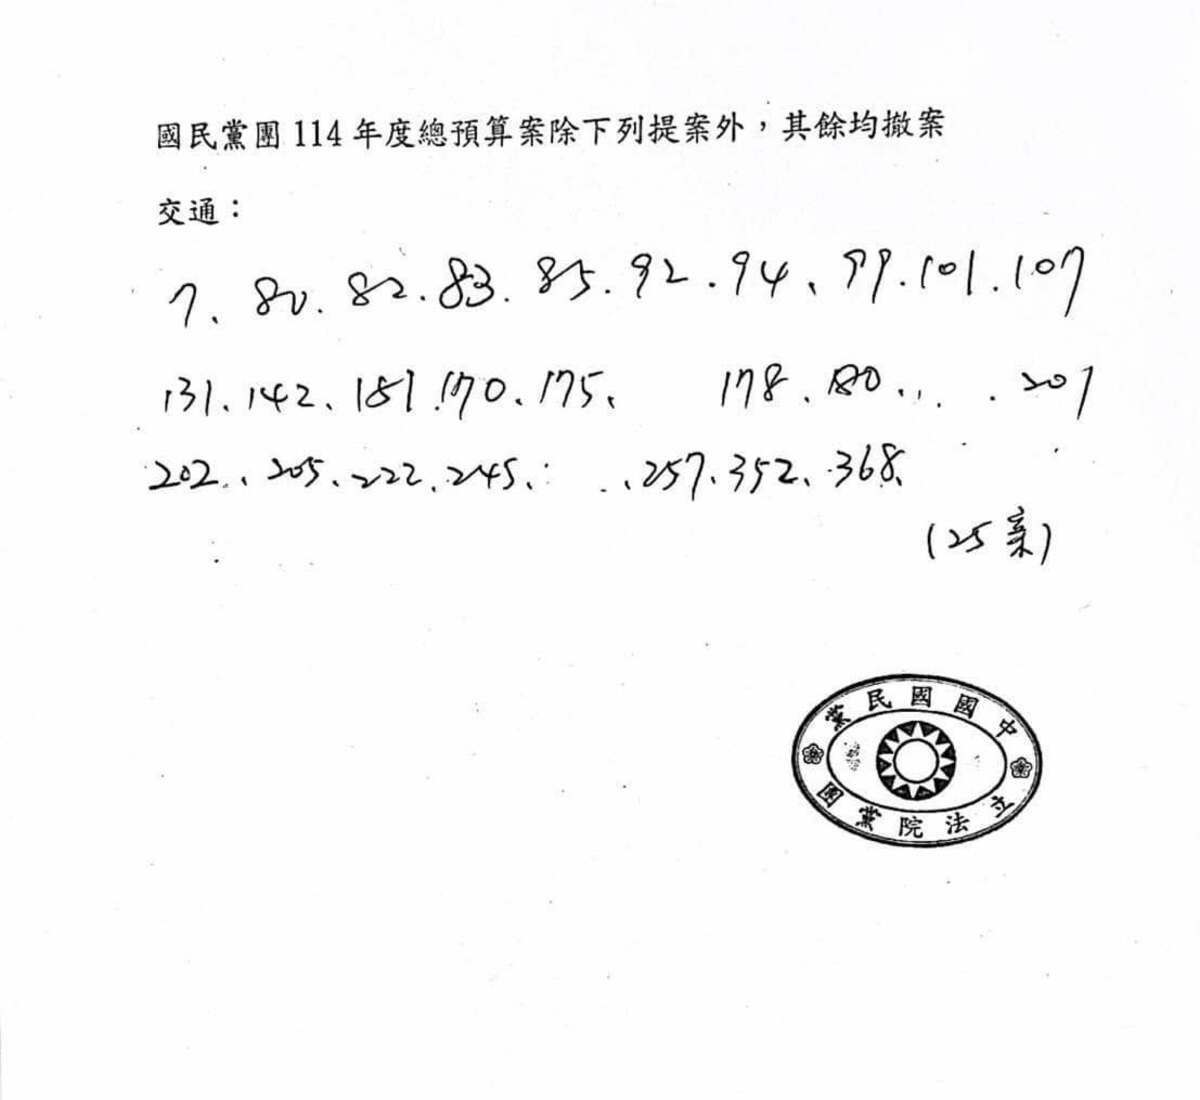 國民黨團114年度總預算案除下列提案外，其餘均撤案
交通：
7、80、82、83、85、92、94、99、101、107
131、142、151、170、175、178、180、、、201
202、、205、222、245、、257、352、368、
(25案)
中國國民黨
立法院黨團